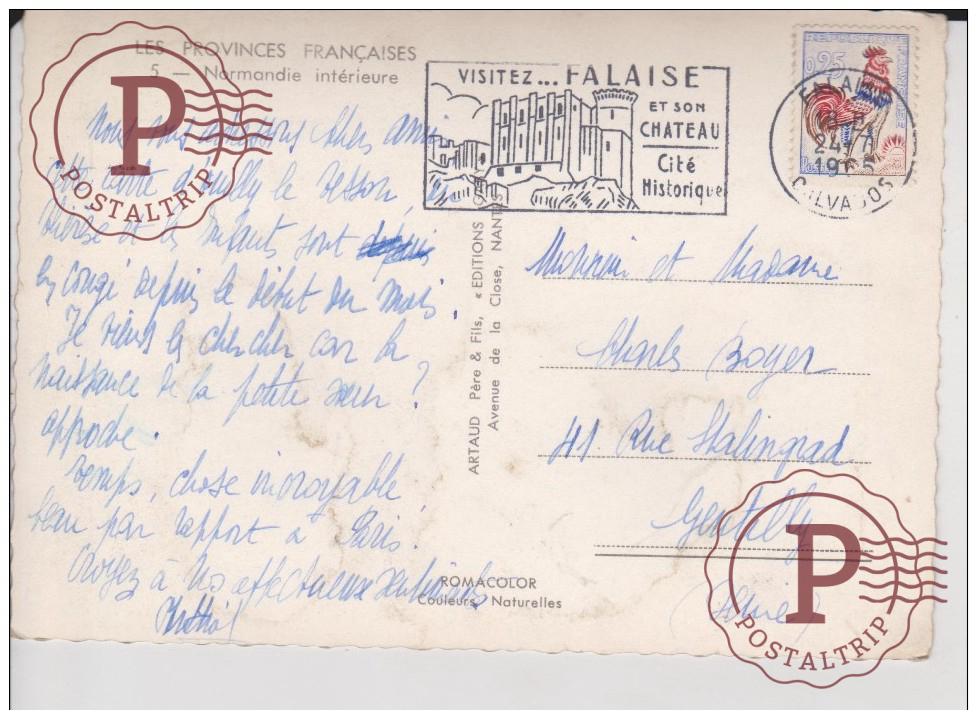 LES PROVINCES FRANÇAISES
5 — Normandie intérieure
Nous vous adressons chers amis
cette carte d'
et les enfants sont
en congé depuis le début du mois.
Je viens les chercher car la
naissance de la petite sœur ?
approche.
Temps, chose incroyable
beau par rapport à Paris.
Croyez à nos affectueux sentiments
VISITEZ... FALAISE
ET SON
CHATEAU
Cité
Historique
REPUBLIQUE FRANÇAISE
0,25
FALAISE
24
CALVADOS
ARTAUD Père & Fils, « EDITIONS
Avenue de la Close, NANTES
Monsieur et Madame
Charles Boyer
41 Rue Stalingrad
Gentilly
(Seine)
ROMACOLOR
Couleurs Naturelles
P
POSTALTRIP
P
POSTALTRIP